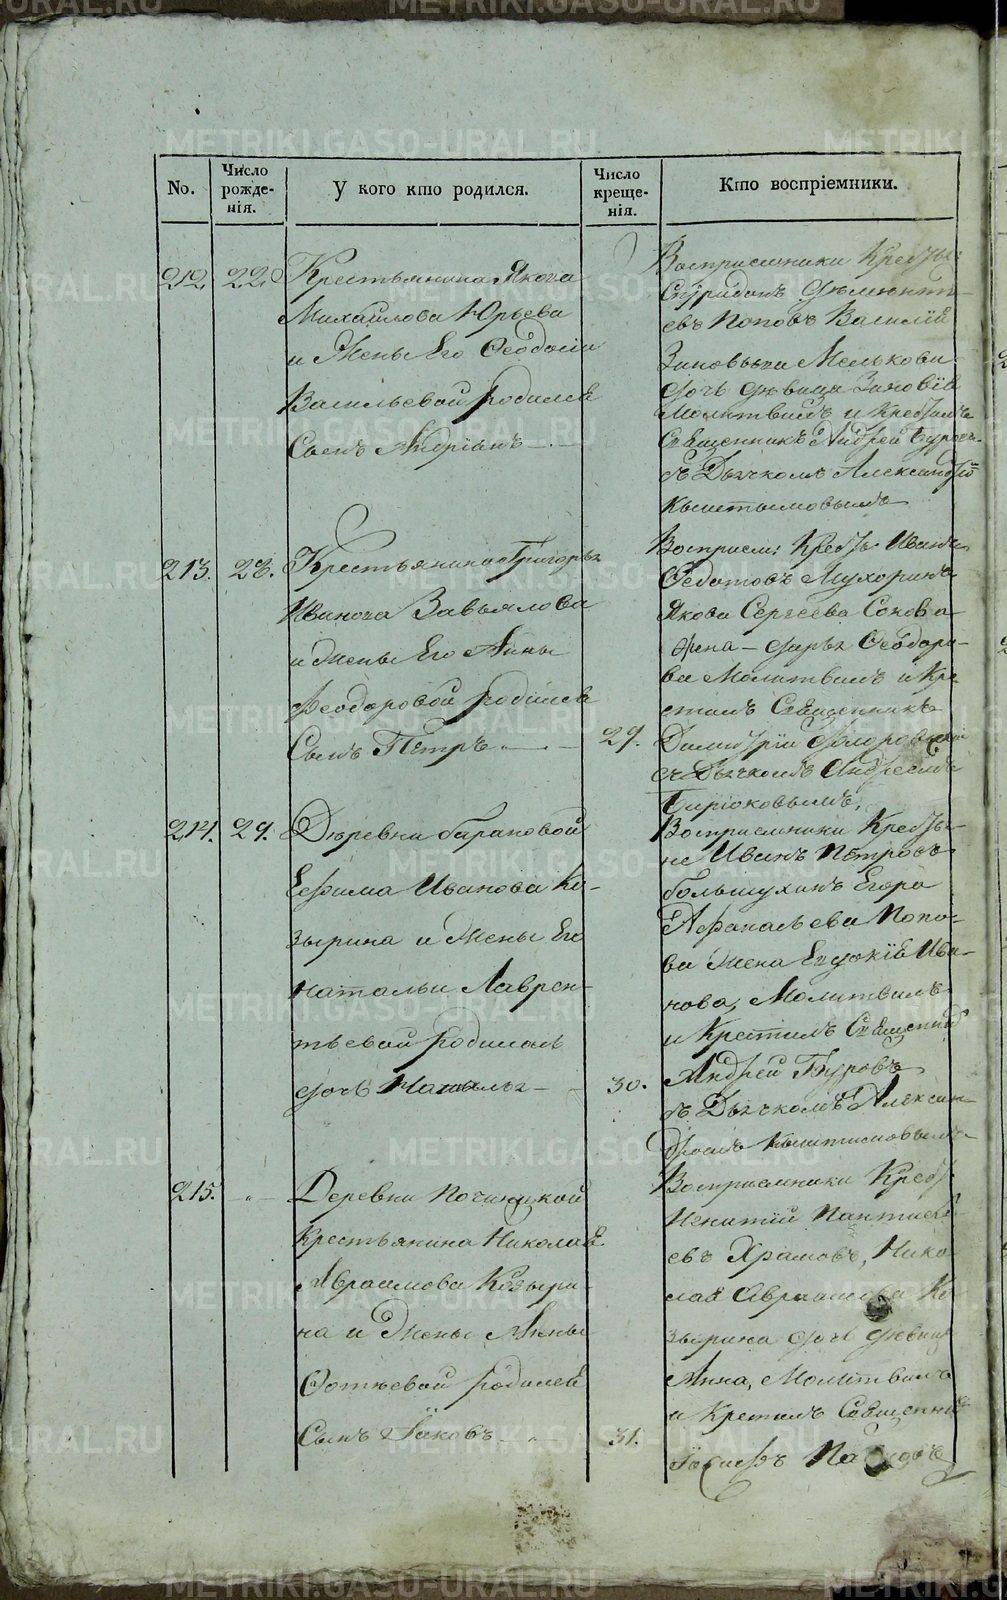 No.
Число рожде-нія.
У кого кто родился.
Число креще-нія.
Кто воспріемники.
212 22
Крестьянина Якова
Михайлова Юрьева
и Жены Его Ѳеодосіи
Васильевой родился
Сынъ Андріанъ
Воспріемники Крестья:
Спиридонъ
евъ Поповъ Василій
Зиновьева Мелькова
дочь дѣвица Зиновія
Молитвилъ и Крестилъ
Священникъ Андрей Буровъ
съ Дьячкомъ Александромъ
Кыштымовымъ
213. 28.
Крестьянина Григорья
Иванова Завьялова
и Жены Его Анны
Феодоровой родился
Сынъ Петръ
29.
Воспріем: Крестья: Иванъ
Ѳедотовъ Мухоринъ
Якова Сергеева Сокова
жена – Дарья Ѳеодоро-
ва Молитвилъ и Кре
стилъ Священникъ
Димитрій
съ Дьячкомъ Андреемъ
Бирюковымъ,
214. 29.
Деревни Барановой
Ефима Иванова Ко-
зырина и Жены Его
Натальи Лаврен-
тьевой родилась
дочь Наталья
30.
Воспріемники Крестья-
не Иванъ Петровъ
Большухинъ Егора
Афанасьева Попо-
ва Жена Евдокія Ива-
нова, Молитвилъ
и Крестилъ Священникъ
Андрей Буровъ
съ Дьячкомъ Алексан-
дромъ Кыштымовымъ
215.
Деревни Починоцкой
Крестьянина Николая
Авраамова Козыри-
на и Жены Анны
Фотѣевой родился
Сынъ Іаковъ
31.
Воспріемники Крестья
евъ Храмовъ, Нико
лая Авраамова Ко
зырина дочь дѣвица
Анна, Молитвилъ
и Крестилъ Священникъ
Іосифъ
METRIKI.GASO-URAL.RU